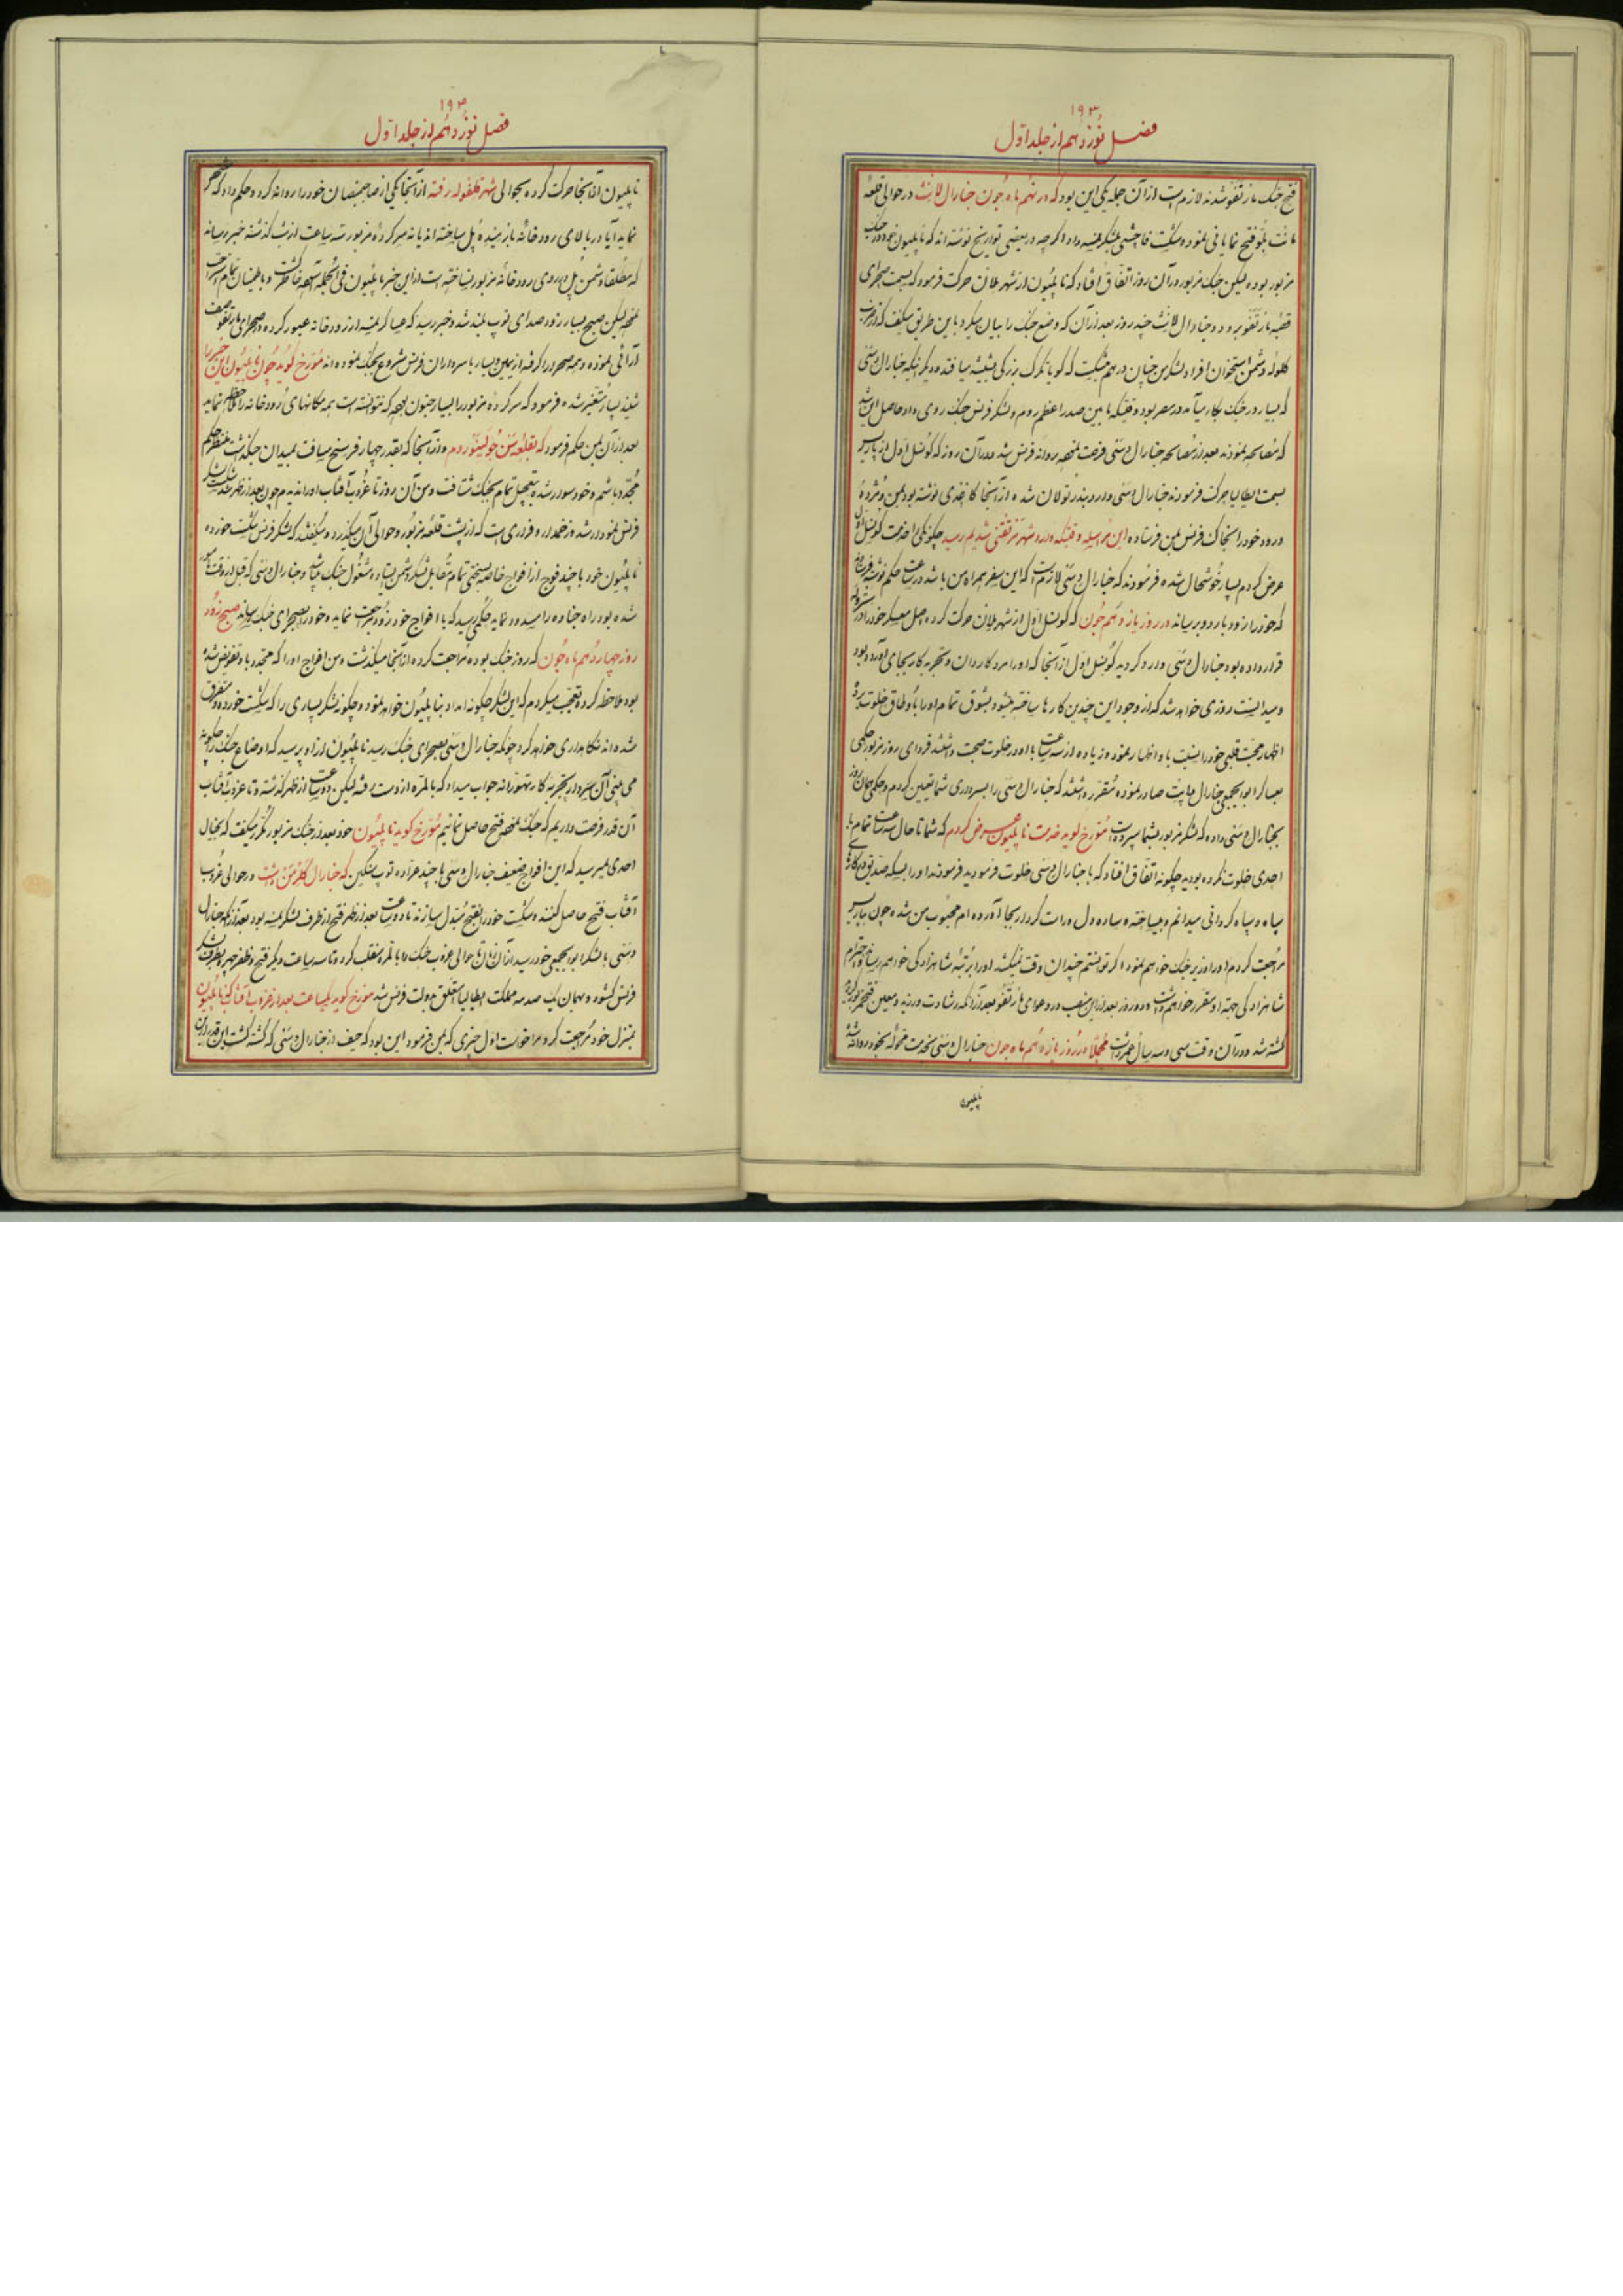 ۱۹۳
فصل نوزدهم از جلد اول
فتح جنک مارنقو شدند لازمست از آن جمله یکی این بود که در نهم ماه جون جنارال لانش در حوالی قلعه
فتح نمایانی نموده و شکست فاحشی بلشکر نمسه داد اگر چه در بعضی تواریخ نوشته اند که ناپلیون خود در جنک
مزبور بوده لیکن جنک مزبور در آن روز اتفاق افتاد که ناپلیون از شهر ملان حرکت فرمود که بسمت صحرای
قصبه مارنقو برود و جنارال لانش چند روز بعد از آن که وضع جنک را بیان میکرد باین طریق میکفت که از ضرب
کلوله دشمن استخوان افراد لشکر من چنان در هم میشکست که کویا تکرک بزرکی بشیشه میافتد و دیگر اینکه جنارال دسنی
که بسیار در جنک بکار میآمد در مصر بود وقتیکه مابین صدر اعظم روم و لشکر فرنس جنک روی داد حاصل این شد
که مصالحه نمودند بعد از مصالحه جنارال دسنی فرصت نموده روانه فرنس شد در آن روز که کونسل اول از پاریس
بسمت ایطالیا حرکت فرمودند جنارال دسنی وارد بندر تولان شد و از آنجا کاغذی نوشته بود بمن و مژده
ورود خود را بخاک فرنس بمن فرستاده این مراسله وقتیکه وارد شهر شدیم رسید چکونکی را خدمت کونسل اول
عرض کردم بسیار خوشحال شده فرمودند که جنارال دسنی لازمست که این سفر همراه من باشد در ساعت حکم نوشته
که خود را زود باردو برساند در روز یازدهم جون که کونسل اول از شهر ملان حرکت کرده اصل معسکر خود را در
قرار داده بود جنارال دسنی وارد کردید کونسل اول از آنجا که او را مرد کاردان و تجربه کار بجای آورده بود
و میدانست روزی خواهد شد که از وجود او این چنین کارها ساخته میشود بشوق تمام او را باوطاق خلوت برد
اظهار محبت قلبی خود را نسبت باو اظهار نمود و زیاده از سه ساعت با او در خلوت صحبت داشتند فردای روز مزبور حکمی
صادر نموده مقرر داشتند که جنارال دسنی را بسرداری شما تعیین کردم و حکمی همان روز
بجنارال دسنی داده که لشکر مزبور بشما سپردست مورخ کوید خدمت ناپلیون عرض کردم که شما تا حال سه ساعت تمام با
احدی خلوت نکرده بودید چکونه اتفاق افتاد که با جنارال دسنی خلوت فرمودید فرمودند او را بسیکه صدیق
سپاه و سپاه کردانی میدانم و بیساخته و ساده دل و راست کردار بجا آورده ام محبوب من شده چون بپاریس
مراجعت کردم او را وزیر جنک خواهم نمود اگر توانستم چندان وقت نمیکشد او را برتبه شاهزادکی خواهم رساند
شاهزادکی جهة او مقرر خواهم داشت دو روز بعد از این منصب در دعوای مارنقو بعد از آنکه رشادت ورزید
کشته شد و در آن وقت سی و سه سال عمر داشت مجملا در روز یازدهم ماه جون جنارال دسنی بخدمت محوله بخود روانه شد
ناپلیون
۱۹۴
فصل نوزدهم از جلد اول
ناپلیون از آنجا حرکت کرده بحوالی شهر رفته از آنجا یکی از صاحبمنصبان خود را روانه کرد و حکم داد که
نماید آیا در بالای رودخانه پل ساخته اند یا نه سر کرده مزبور سه ساعت از شب کذشته خبر رسانید
که مطلقا دشمن پل در روی رودخانه مزبور نساخته است از این خبر ناپلیون فی الجمله آسوده خاطر کشت و باطمینان تمام
لیکن صبح بسیار زود صدای توپ بلند شد و خبر رسید که عساکر نمسه از رودخانه عبور کرده در صحرای مارنقو صف
آرائی نموده و همه صحرا را کرفته از یمین و یسار با سرداران فرنس شروع بجنک نموده اند مورخ کوید چون ناپلیون این خبر را
شنید بسیار متغیر شده فرمود که سرکرده مزبور را بسیار جبون بوده که نتوانسته است همه مکانهای رودخانه را ملاحظه نماید
بعد از آن بمن حکم فرمود که بقلعه سن جولینو روم و از آنجا که بقدر چهار فرسخ مسافت بمیدان جنک داشت منتظر حکم
مجدد باشم و خود سوار شده بتعجیل تمام بجنک شتافت و من آن روز تا غروب آفتاب او را ندیدم چون بعد از ظهر شکست بلشکر
فرنس نموده شد و زخمدار و فراری است که از پشت قلعه مزبور و حوالی آن میکذرد و میکفتند که لشکر فرنس شکست خورده
ناپلیون خود با چند فوج از افواج خاصه بسختی تمام مقابل لشکر دشمن ایستاده مشغول جنک میباشد و جنارال دسنی که قبل از وقت مامور
شده بود راه جناوه را مسدود نماید حکمی رسید که با افواج خود زود رجعت نماید و خود را بصحرای جنک رساند صبح زود
روز چهاردهم ماه جون که روز جنک بوده مراجعت کرده از آنجا میکذشت و من افواج او را که مجدد باو تفویض شده
بود ملاحظه کرده تعجب میکردم که این لشکر چکونه امداد بناپلیون خواهد نمود و چکونه لشکر بسیاری را که شکست خورده و متفرق
شده اند نکاهداری خواهد کرد چونکه جنارال دسنی بصحرای جنک رسید ناپلیون از او پرسید که اوضاع جنک را چکونه
می بینی آن سردار تجربه کار متهورانه جواب میداد که بالمره از دست رفته لیکن دو ساعت از ظهر کذشته و تا غروب آفتاب
آن قدر فرصت داریم که جنک نموده فتح حاصل نمائیم مورخ کوید ناپلیون خود بعد از جنک مزبور مکرر میکفت که بخیال
احدی نمیرسید که این افواج ضعیف جنارال دسنی با چند عراده توپ سنکین که جنارال کلرمن داشت در حوالی غروب
آفتاب فتح حاصل کنند و شکست خود را بفتح مبدل سازند تا دو ساعت بعد از ظهر فتح از طرف لشکر نمسه بود بعد از آنکه جنارال
دسنی با لشکر ابوابجمعی خود رسید از آن زمان تا حوالی غروب جنک را بالمره منقلب کرده تا سه ساعت دیگر فتح و ظفر
فرنس کشود و بهمان یک صدمه مملکت ایطالیا متعلق بدولت فرنس شد مورخ کوید یکساعت بعد از غروب آفتاب که ناپلیون
بمنزل خود مراجعت کرد مرا خواست اول چیزی که بمن فرمود این بود که حیف از جنارال دسنی که کشته کشت